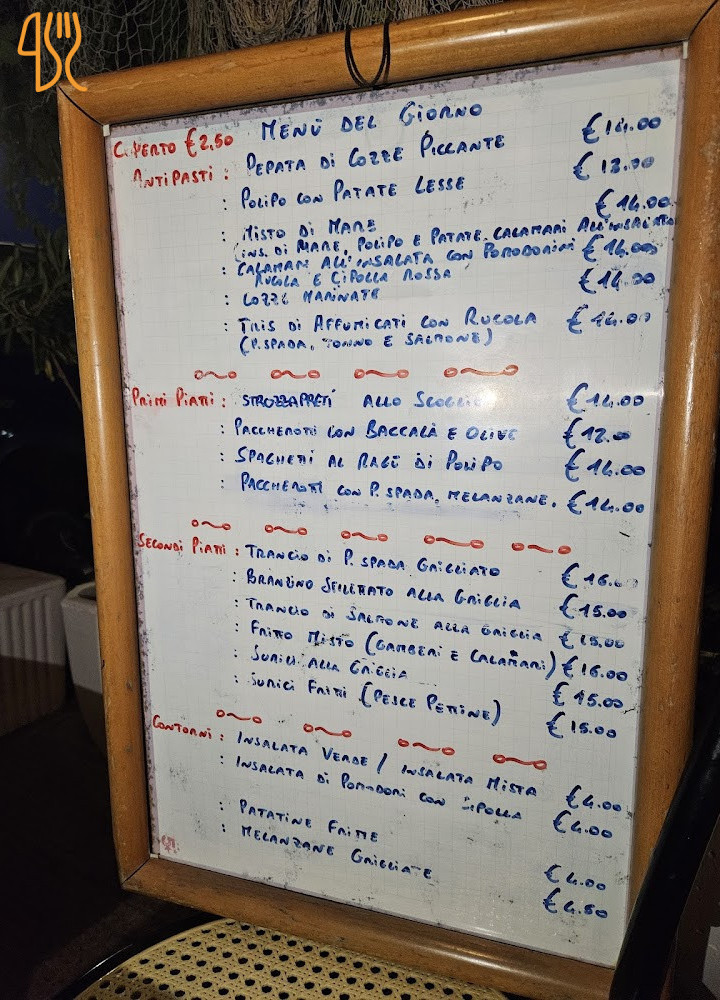 MENÙ DEL GIORNO
COPERTO €2.50
ANTIPASTI : PEPATA DI COZZE PICCANTE €14.00
: POLIPO CON PATATE LESSE
: MISTO DI MARE €14.00
(INS. DI MARE, POLIPO E PATATE, CALAMARI ALL'INSALATA
: CALAMARI ALL'INSALATA CON POMODORINI €14.00
RUGOLA E CIPOLLA ROSSA
: COZZE MARINATE €14.00
: TRIS DI AFFUMICATI CON RUCOLA €14.00
(P.SPADA, TONNO E SALMONE)
PRIMI PIATTI : STROZZAPRETI ALLO SCOGLIO €14.00
: PACCHEROTTI CON BACCALÀ E OLIVE €12.00
: SPAGHETTI AL RAGÙ DI POLIPO €14.00
: PACCHEROTTI CON P.SPADA, MELANZANE. €14.00
SECONDI PIATTI : TRANCIO DI P. SPADA GRIGLIATO €16.00
: BRANZINO SFILETTATO ALLA GRIGLIA €15.00
: TRANCIO DI SALMONE ALLA GRIGLIA €15.00
: FRITTO MISTO (GAMBERI E CALAMARI) €16.00
: SURICI ALLA GRIGLIA €15.00
: SURICI FRITTI (PESCE PETTINE) €15.00
CONTORNI : INSALATA VERDE / INSALATA MISTA €4.00
: INSALATA DI POMODORI CON CIPOLLA €4.00
: PATATINE FRITTE €4.00
: MELANZANE GRIGLIATE €4.50